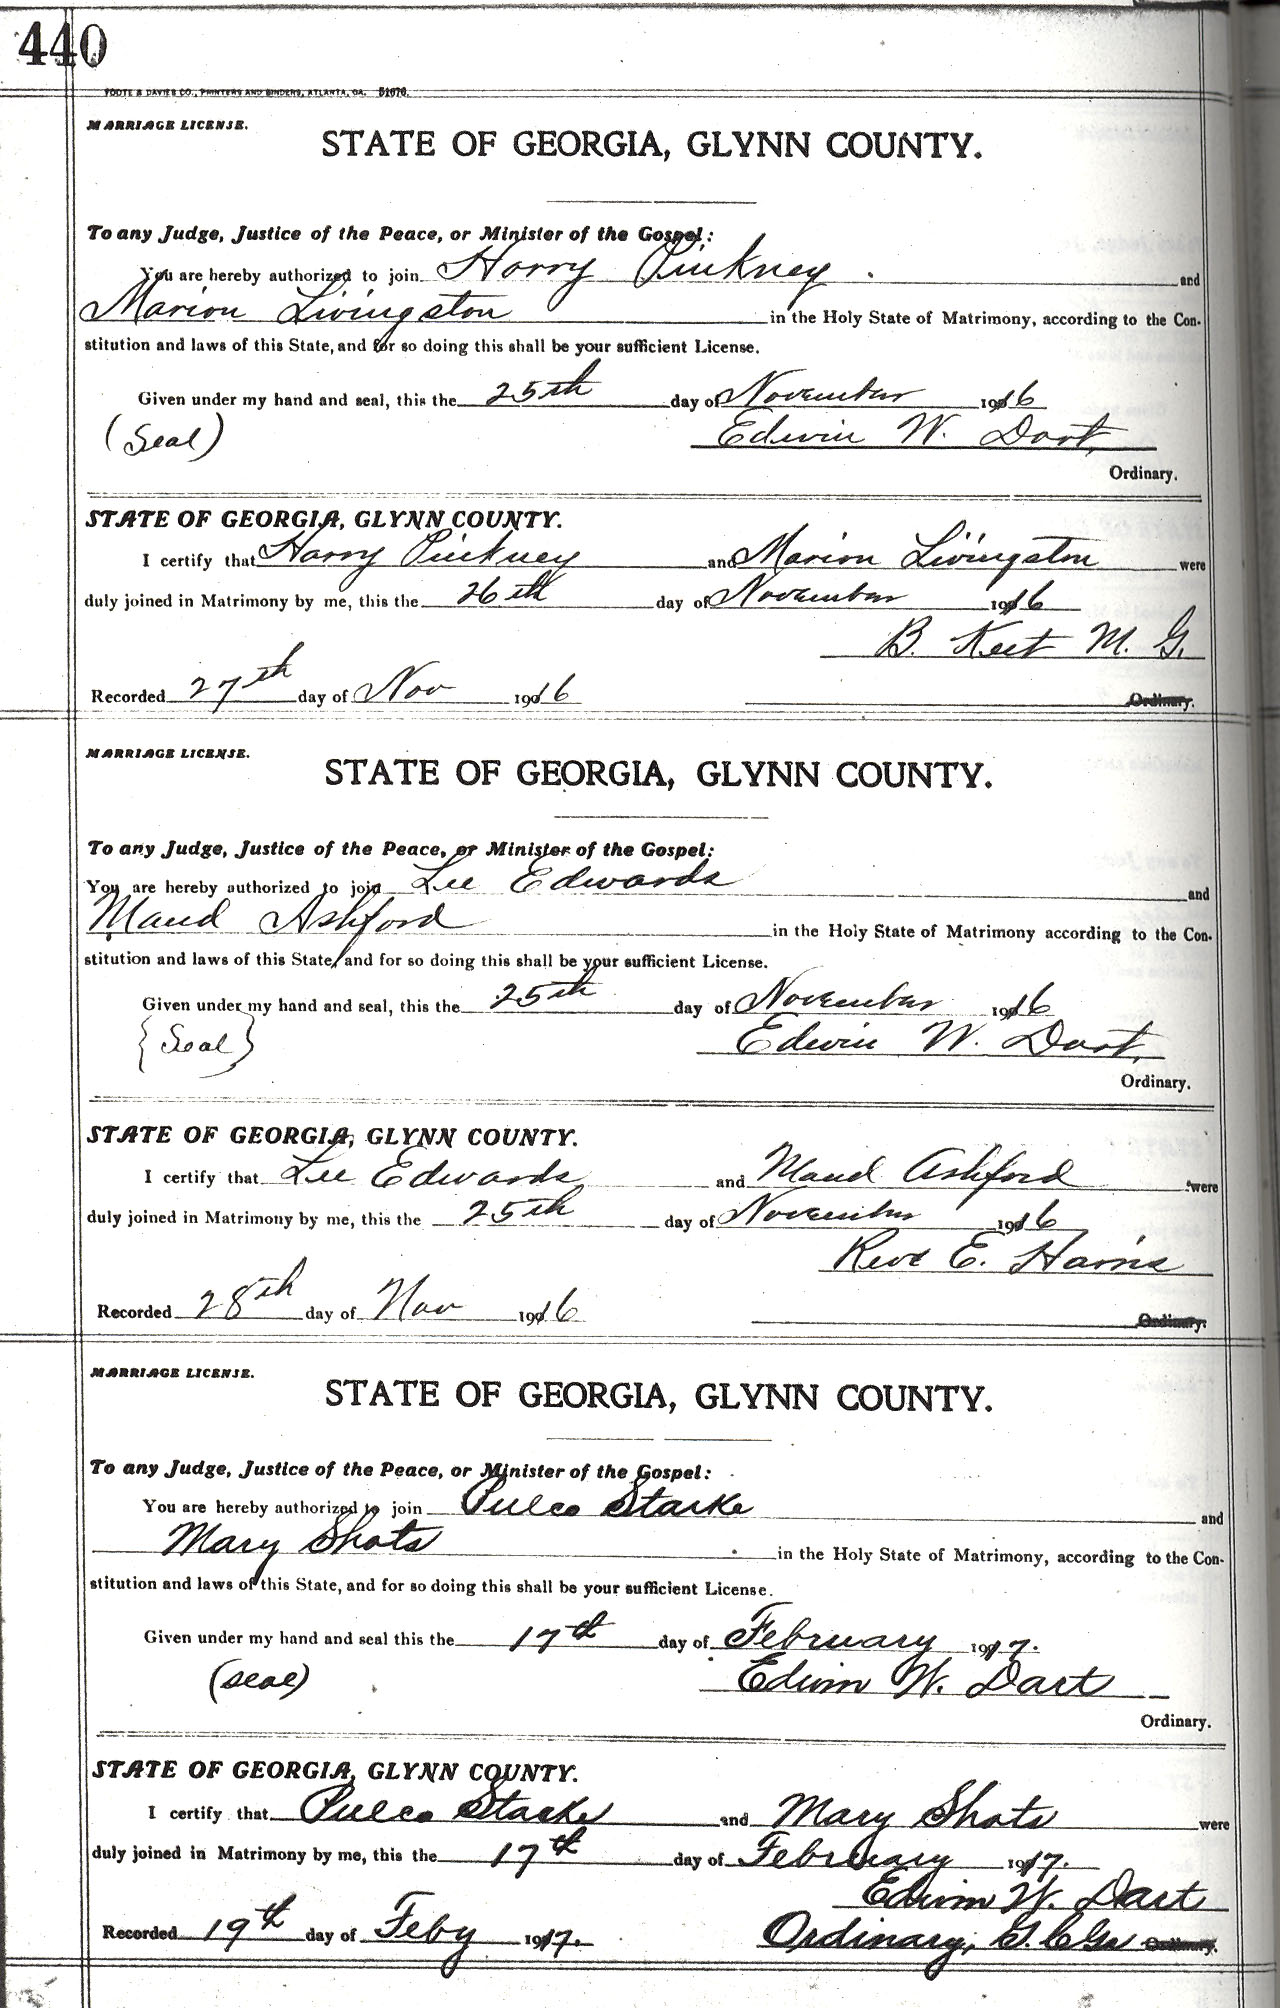 440
FOOTE & DAVIES CO., PRINTERS AND BINDERS, ATLANTA, GA. 51676.
MARRIAGE LICENSE.
STATE OF GEORGIA, GLYNN COUNTY.
To any Judge, Justice of the Peace, or Minister of the Gospel:
You are hereby authorized to join Harry Pinkney and
Marion Livingston in the Holy State of Matrimony, according to the Con-
stitution and laws of this State, and for so doing this shall be your sufficient License.
Given under my hand and seal, this the 25th day of November 1916
(Seal) Edwin W. Dart,
Ordinary.
STATE OF GEORGIA, GLYNN COUNTY.
I certify that Harry Pinkney and Marion Livingston were
duly joined in Matrimony by me, this the 26th day of November 1916
B. Keet M. G.
Recorded 27th day of Nov 1916 Ordinary.
MARRIAGE LICENSE.
STATE OF GEORGIA, GLYNN COUNTY.
To any Judge, Justice of the Peace, or Minister of the Gospel:
You are hereby authorized to join Lee Edwards and
Maud Ashford in the Holy State of Matrimony according to the Con-
stitution and laws of this State, and for so doing this shall be your sufficient License.
Given under my hand and seal, this the 25th day of November 1916
{Seal} Edwin W. Dart,
Ordinary.
STATE OF GEORGIA, GLYNN COUNTY.
I certify that Lee Edwards and Maud Ashford were
duly joined in Matrimony by me, this the 25th day of November 1916
Revd E. Harris
Recorded 28th day of Nov 1916 Ordinary.
MARRIAGE LICENSE.
STATE OF GEORGIA, GLYNN COUNTY.
To any Judge, Justice of the Peace, or Minister of the Gospel:
You are hereby authorized to join Pulco Starke and
Mary Shots in the Holy State of Matrimony, according to the Con-
stitution and laws of this State, and for so doing this shall be your sufficient License.
Given under my hand and seal this the 17th day of February 1917.
(seal) Edwin W. Dart
Ordinary.
STATE OF GEORGIA, GLYNN COUNTY.
I certify that Pulco Starke and Mary Shots were
duly joined in Matrimony by me, this the 17th day of February 1917.
Edwin W. Dart
Recorded 19th day of Feby 1917. Ordinary, G. C. Ga Ordinary.